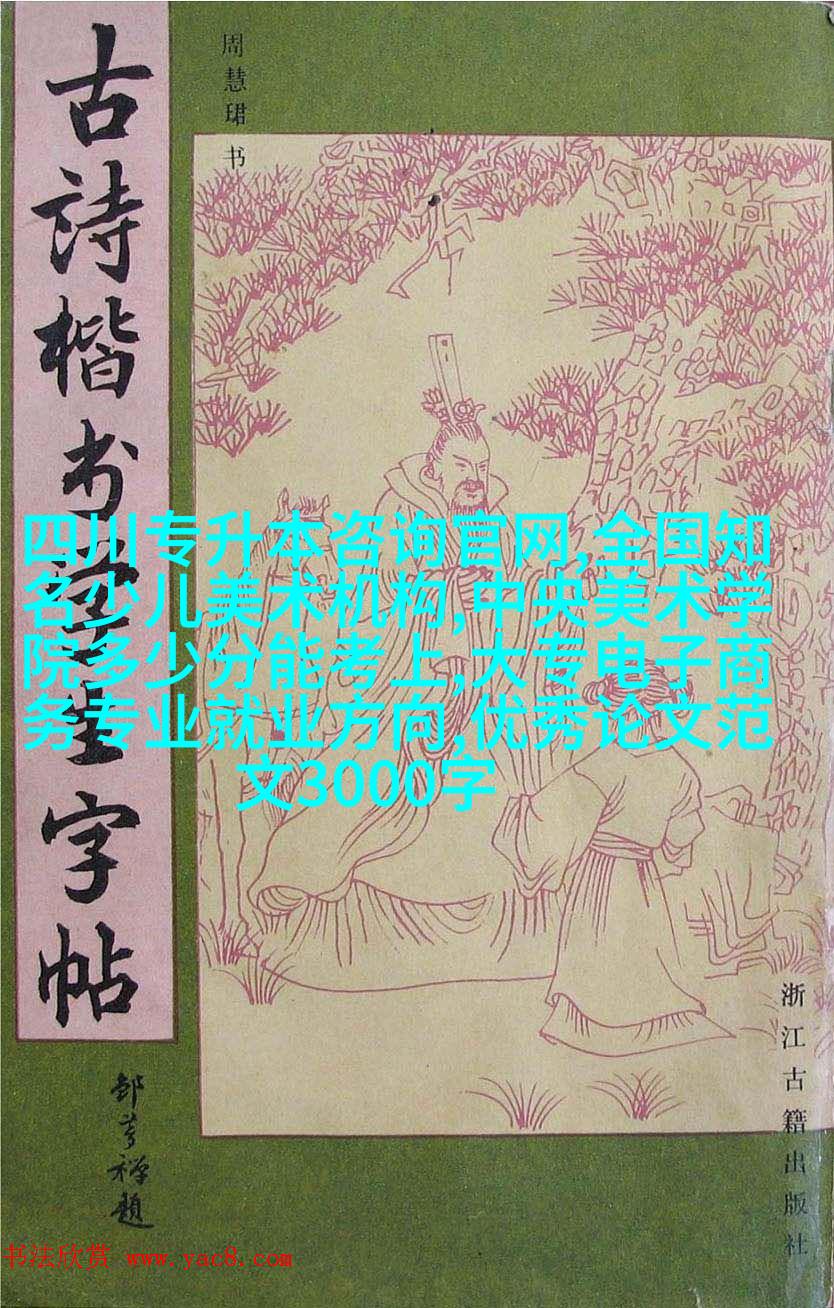 古詩楷书
生字帖
周慧珺书
四川专升本咨询官网,全国知
名少儿美术机构,中央美术学
院多少分能考上,大专电子商
务专业就业方向,优秀论文范
文3000字
邹夢禅題
浙江古籍出版社
书法欣赏 www.yac8.com